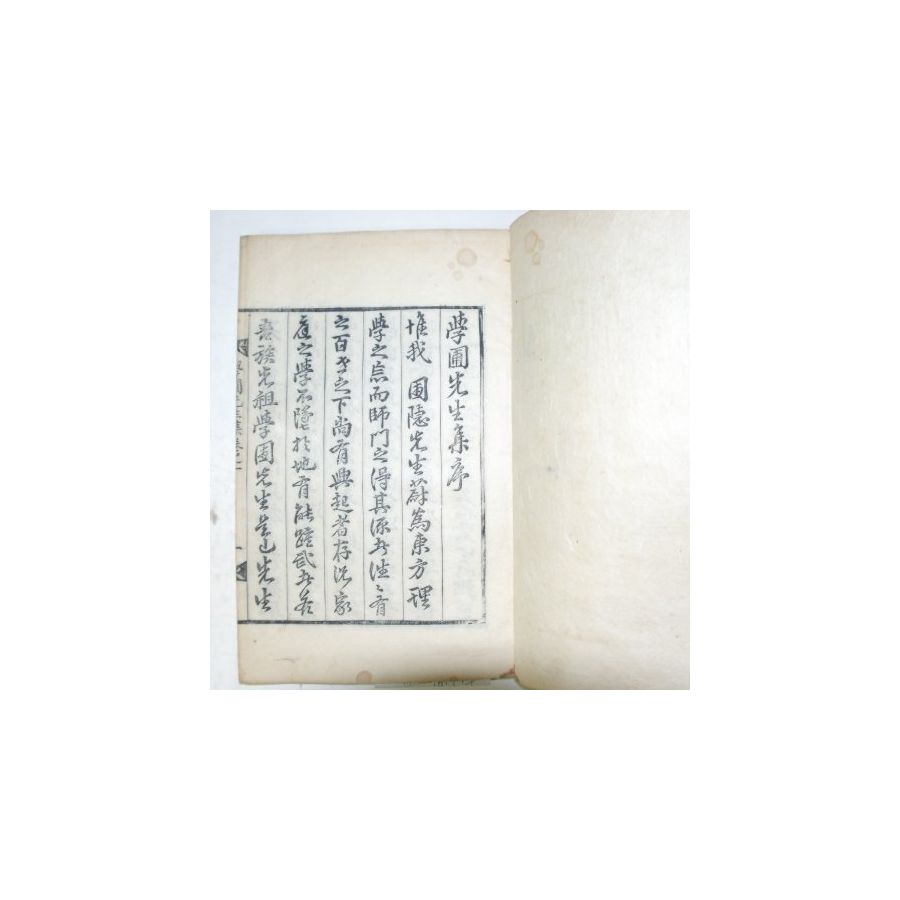 學圃先生集序
惟我 圃隱先生蔚爲東方理
學之宗而師門之得其源者往々有
之百世之下尚有興起者存況家
庭之學不墜於地有能踵武者若
吾族先祖學圃先生是也先生
學圃先生集卷之一